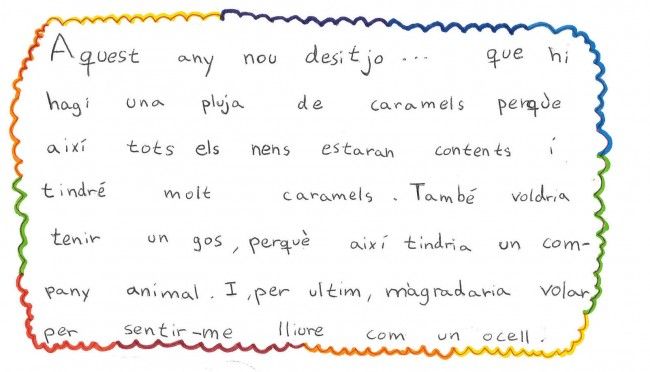 Aquest any nou desitjo... que hi
hagi una pluja de caramels perquè
així tots els nens estaran contents i
tindré molt caramels. També voldria
tenir un gos, perquè així tindria un com-
pany animal. I, per ultim, m'agradaria volar
per sentir-me lliure com un ocell.